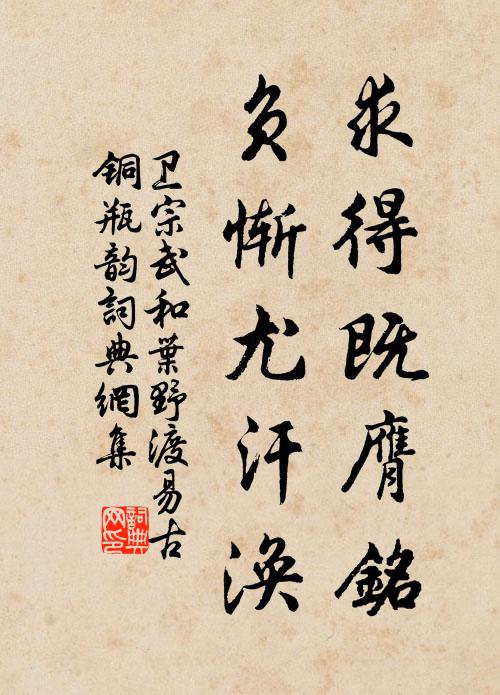 求得既膺銘
负惭尤汗渙
卫宗武和葉野渡易古
铜瓶韵詞典網集
詞典网印